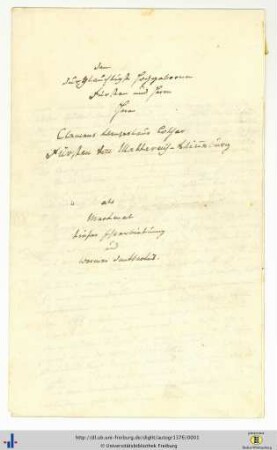 Dem
Durchlauchtigst Hochgebornen
Fürsten und Herrn
Herrn
Clemens Wenzeslaus Lothar
Fürsten von Metternich-Winneburg
als
Merkmal
tiefer Verehrung
und
warmer Dankbarkeit.
http://dl.ub.uni-freiburg.de/diglit/autog1376/0001
© Universitätsbibliothek Freiburg